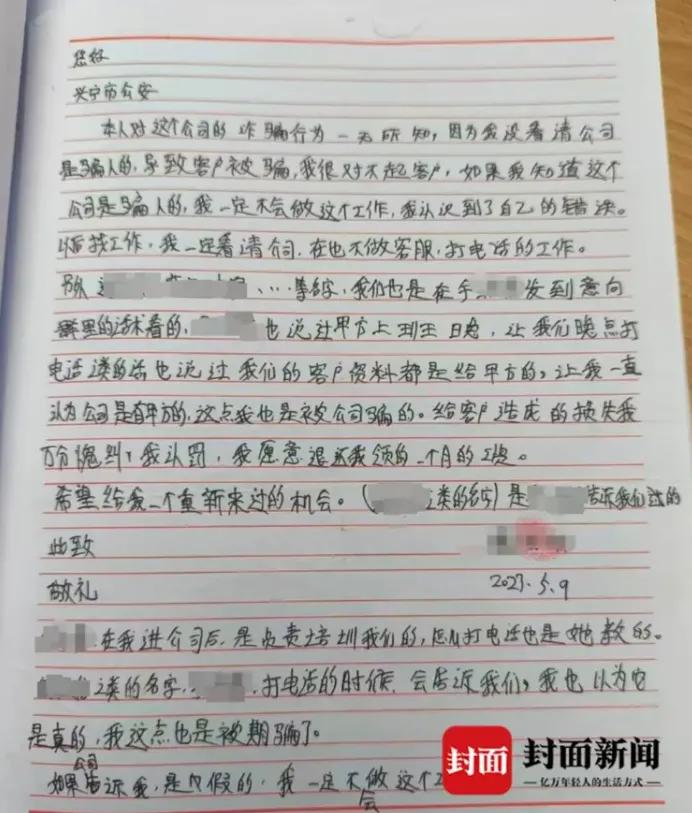 您好
兴宁市公安
本人对这个公司的诈骗行为一无所知,因为我没看清公司
是骗人的,导致客户被骗,我很对不起客户,如果我知道这个
公司是骗人的,我一定不会做这个工作,我认识到了自己的错误。
找工作,我一定看清公司,在也不做客服,打电话的工作。
等名字,我们也是在手 发到意向
群里的话术看的, 也说过甲方上 到 日 ,让我们晚点打
电话 的话也说过我们的客户资料都是给甲方的,让我一直
认为公司是有甲方的,这点我也是被公司骗的。给客户造成的损失我
万分愧纠,我认罚,我愿意退还我领的一个月的工资。
希望给我一个重新来过的机会。( 类的名字)是 告诉我们过的
此致
敬礼 2023.5.9
在我进公司后,是负责培训我们的,怎么打电话也是她教的。
类的名字, 打电话的时候,会告诉我们,我也认为它
是真的,我这点也是被期骗了。
如果公司告诉我,是 假的,我一定不会做这个工
封面 封面新闻
亿万年轻人的生活方式